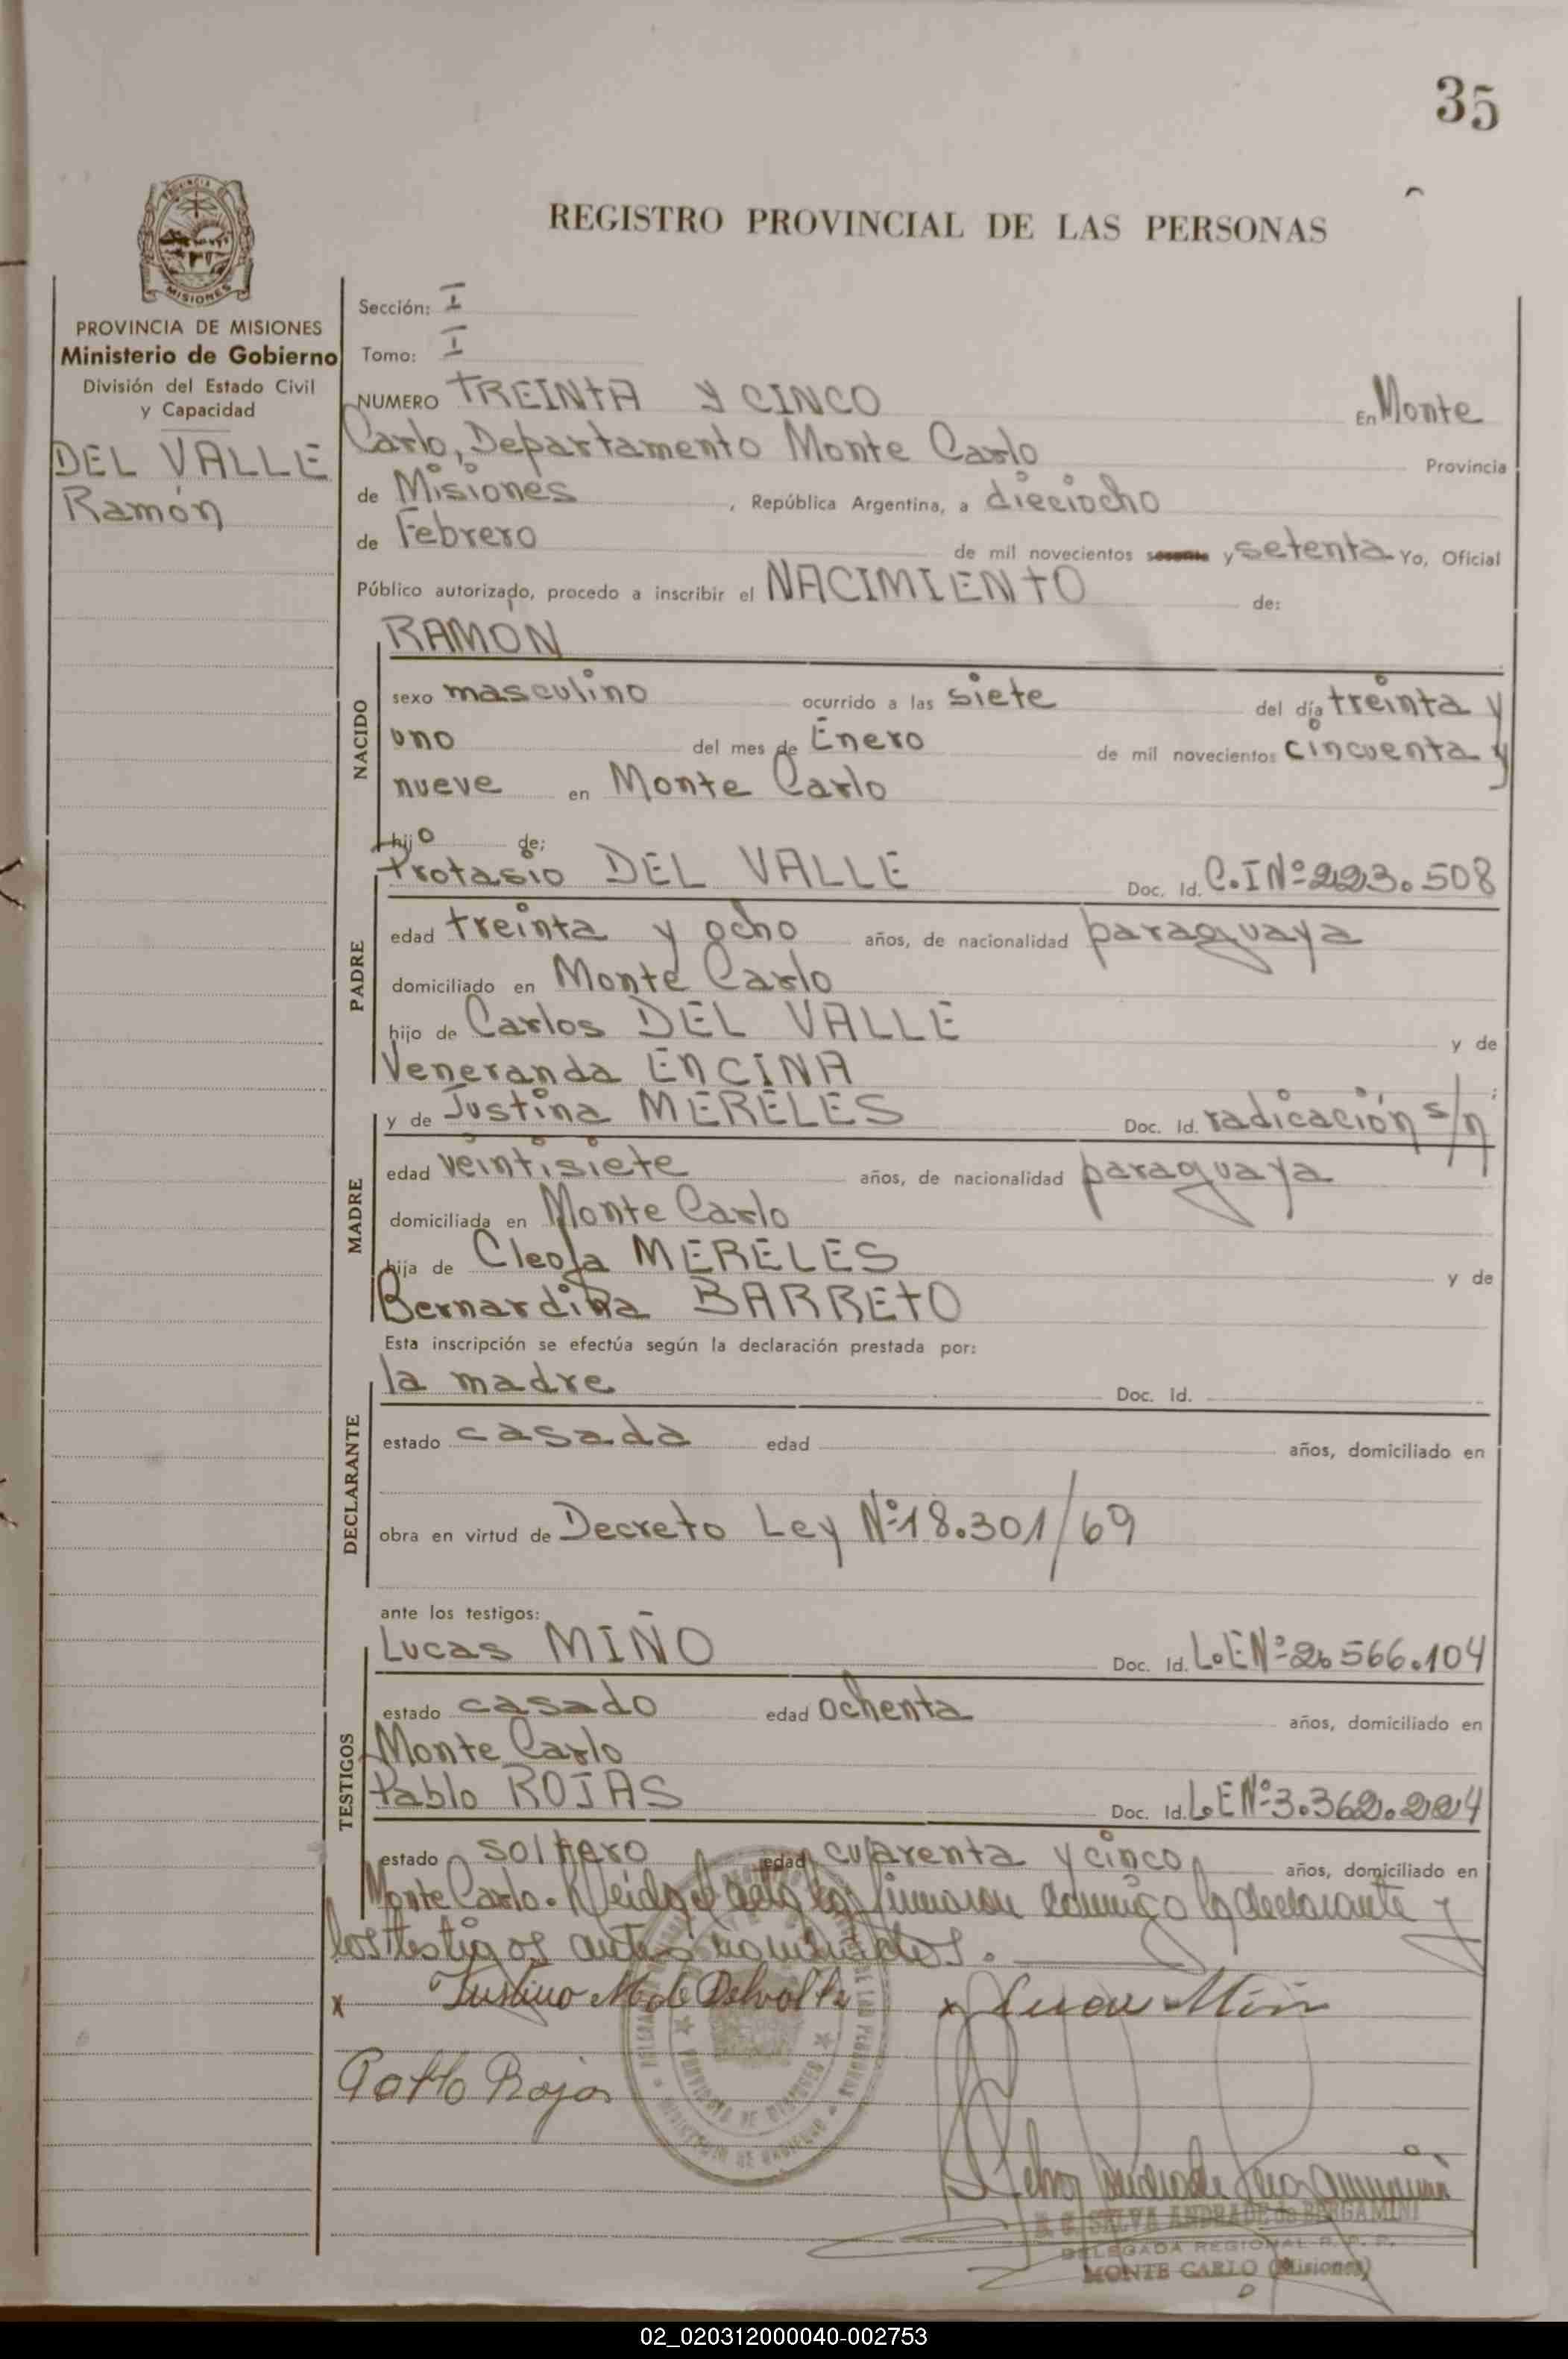 35
REGISTRO PROVINCIAL DE LAS PERSONAS
PROVINCIA DE MISIONES
Ministerio de Gobierno
División del Estado Civil
y Capacidad
DEL VALLE
Ramón
Sección: I
Tomo: I
NUMERO TREINTA Y CINCO En Monte
Carlo, Departamento Monte Carlo Provincia
de Misiones, República Argentina, a dieciocho
de Febrero de mil novecientos sesenta y setenta Yo, Oficial
Público autorizado, procedo a inscribir el NACIMIENTO de:
NACIDO
RAMÓN
sexo masculino ocurrido a las siete del día treinta y
uno del mes de Enero de mil novecientos cincuenta y
nueve en Monte Carlo
hijo de;
PADRE
Protasio DEL VALLE Doc. Id. C.I Nº 223.508
edad treinta y ocho años, de nacionalidad paraguaya
domiciliado en Monte Carlo
hijo de Carlos DEL VALLE y de
Veneranda ENCINA
MADRE
y de Justina MERELES Doc. Id. radicación s/n
edad veintisiete años, de nacionalidad paraguaya
domiciliada en Monte Carlo
hija de Cleofa MERELES y de
Bernardina BARRETO
Esta inscripción se efectúa según la declaración prestada por:
DECLARANTE
la madre Doc. Id.
estado casada edad años, domiciliado en
obra en virtud de Decreto Ley Nº 18.301/69
ante los testigos:
TESTIGOS
Lucas MIÑO Doc. Id. L.E Nº 2.566.104
estado casado edad ochenta años, domiciliado en
Monte Carlo
Pablo ROJAS Doc. Id. L.E Nº 3.362.224
estado soltero edad cuarenta y cinco años, domiciliado en
Monte Carlo. Leída el acta la firmaron conmigo la declarante y
los testigos antes nominados.
x Justina M de Delvalle x Lucas Miño
Pablo Rojas
PROVINCIA DE MISIONES
SELVA ANDRADE de BERGAMINI
DELEGADA REGIONAL R. P. P.
MONTE CARLO (Misiones)
02_020312000040-002753